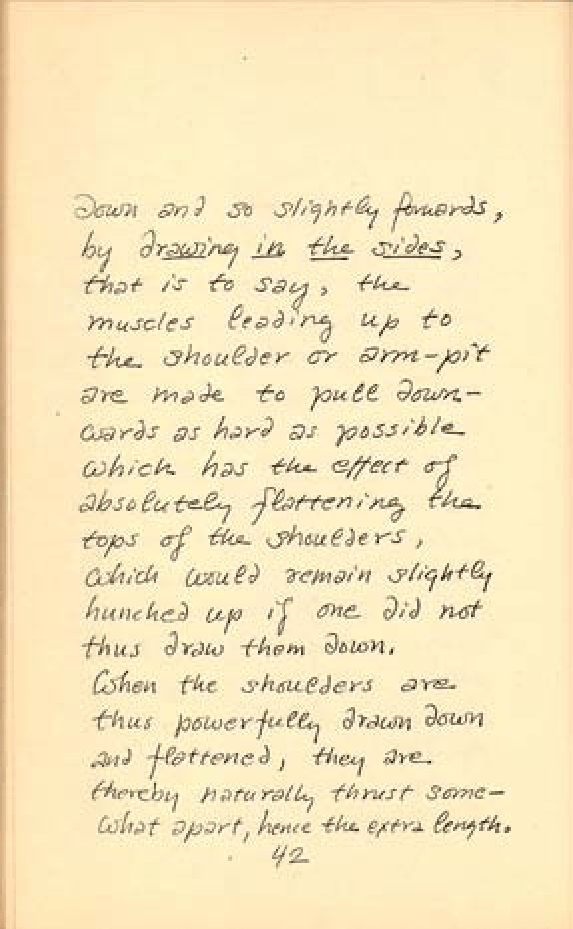 down and so slightly forwards,
by drawing in the sides,
that is to say, the
muscles leading up to
the shoulder or arm-pit
are made to pull down-
wards as hard as possible
which has the effect of
absolutely flattening the
tops of the shoulders,
which would remain slightly
hunched up if one did not
thus draw them down.
When the shoulders are
thus powerfully drawn down
and flattened, they are
thereby naturally thrust some-
what apart, hence the extra length.
42